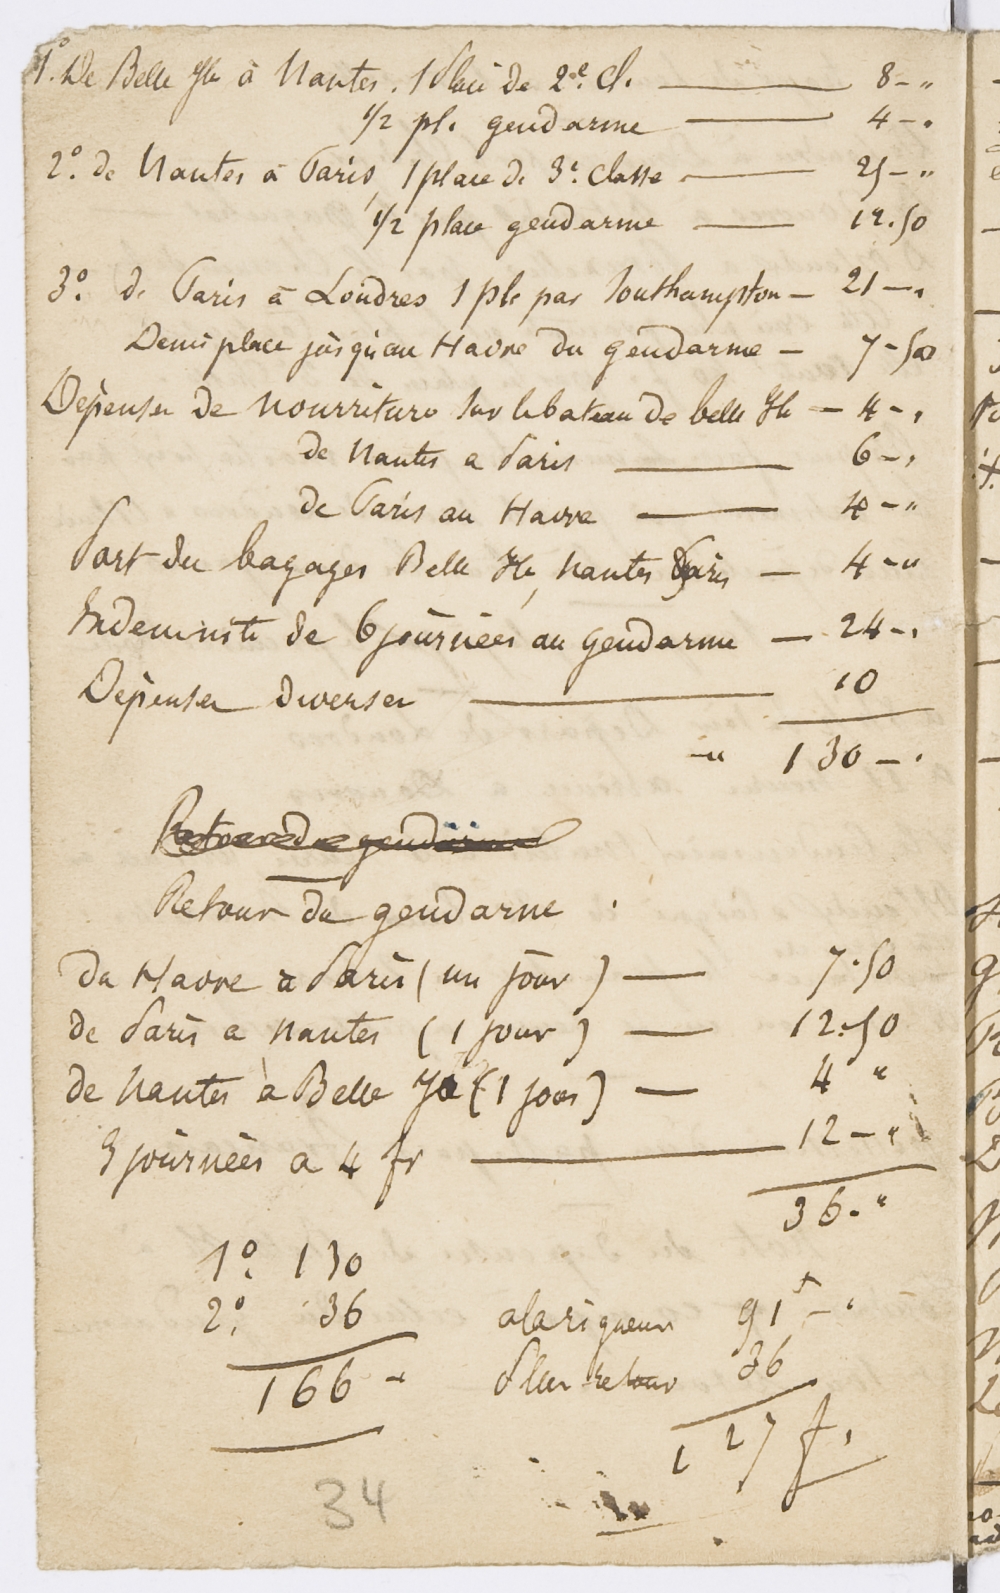 1º. De Belle Ile à Nantes. 1 place de 2e. cl. — 8 - "
1/2 pl. gendarme — 4 - "
2º. de Nantes à Paris, 1 place de 3e. classe — 25 - "
1/2 place gendarme — 12.50
3º. de Paris à Londres 1 ple par Southampton — 21 - "
Demi place jusqu'au Havre du gendarme — 7 - 50
Dépenses de nourriture sur le bateau de belle Ile — 4 - "
de Nantes a Paris — 6 - "
de Paris au Havre — 4 - "
Port du bagages Belle Ile, Nantes Paris — 4 - "
Indemnité de 6 journées au gendarme — 24 - "
Dépenses diverses — 10
130 - "
Retour du gendarme
Retour du gendarme
du Havre a Paris (un jour) — 7.50
de Paris a Nantes (1 jour) — 12.50
de Nantes à Belle Ile (1 jour) — 4 "
3 journées a 4 fr — 12 - "
36 - "
1º. 130
2º. 36 a la rigueur 91 f - "
166 - Plus retour 36
127 f.
34